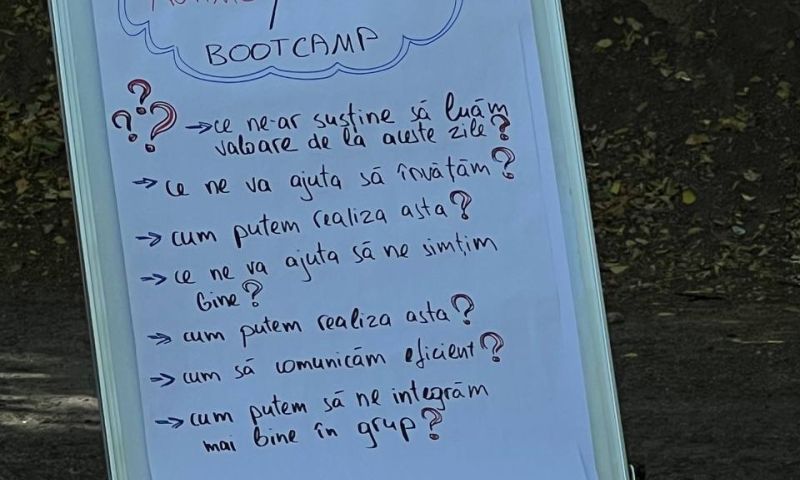 BOOTCAMP
??? → ce ne-ar susține să luăm
valoare de la aceste zile?
→ ce ne va ajuta să învățăm?
→ cum putem realiza asta?
→ ce ne va ajuta să ne simțim
bine?
→ cum putem realiza asta?
→ cum să comunicăm eficient?
→ cum putem să ne integrăm
mai bine în grup?